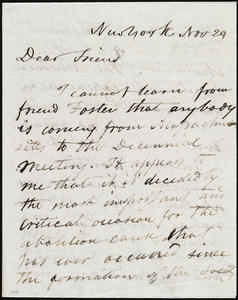 New York Nov 29
Dear Friend
I cannot learn from
friend Foster that anybody
is coming from Massachu
setts to the Decennial
Meeting. It appears to
me that it is decidedly
the most important and
critical occasion for the
abolition cause, that
has ever occurred since
the formation of the Society